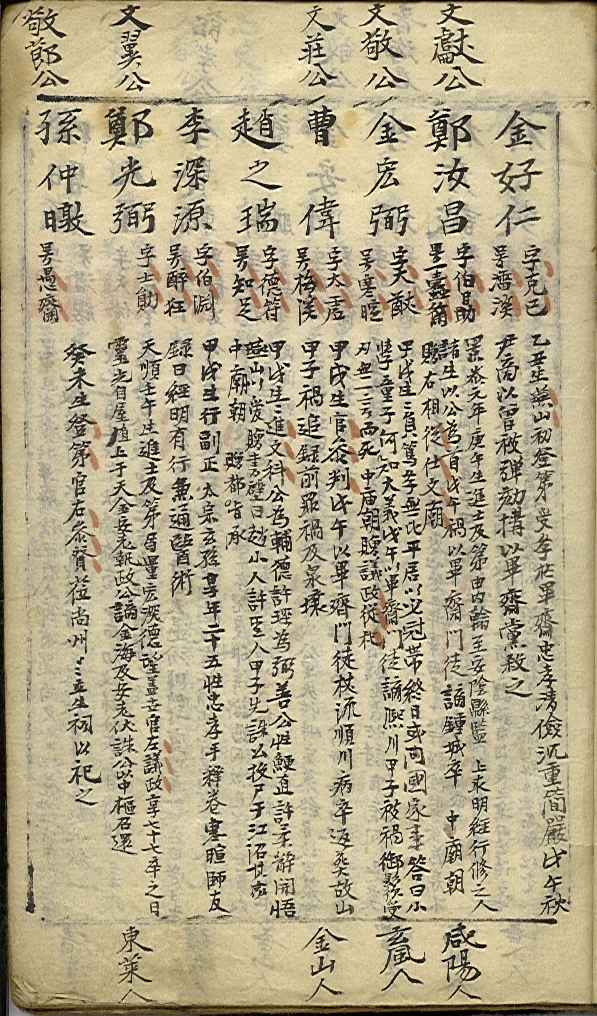 文獻公
文敬公
文莊公
文翼公
敬節公
金好仁
字克己
号潘溪
乙丑生燕山初登第受學於畢齋忠孝清儉沉重簡嚴戊午秋
尹商以曾被彈劾搆以畢齋黨殺之
鄭汝昌
字伯勗
号一蠹
景泰元年庚午生進士及第由內翰至安陰縣監 上求明經行修之人
諸生以公為首戊午禍以畢齋門徒謫鍾城卒 中廟朝
贈右相從仕文廟
金宏弼
字大猷
号寒暄
甲戌生 冠帶終日或問國家事答曰小
學童子何知大義戊午以畢齋門徒謫熙川甲子被禍
刃 而死 中庙朝贈議政從祀
曺偉
字太虛
号梅溪
甲戌生官參判戊午以畢齋門徒杖流順川病卒返葬故山
甲子禍追錄前罪禍及泉壤
趙之瑞
字德符
号知足
甲戌生進文科公為輔德許琛為弼善公性鯁直許 開悟
燕山以爰 書壁曰趙小人許 人甲子先誅公投尸于江沼其家
中廟朝 贈都 承
李深源
字伯淵
号醉狂
甲戌生行副正太宗玄孫享年二十五性忠孝手釋卷寒暄師友
錄曰經明有行兼通醫術
鄭光弼
字士勛
天順壬午生進士及第局量宏深德望盖世官左議政享七十七卒之日
靈光自屋植上于天金安老執政公謫金海及安老伏誅公以中樞召還
孫仲暾
号愚齋
癸未生登第官右參贊莅尚州〻立生祠以祀之
咸陽人
玄風人
金山人
東萊人